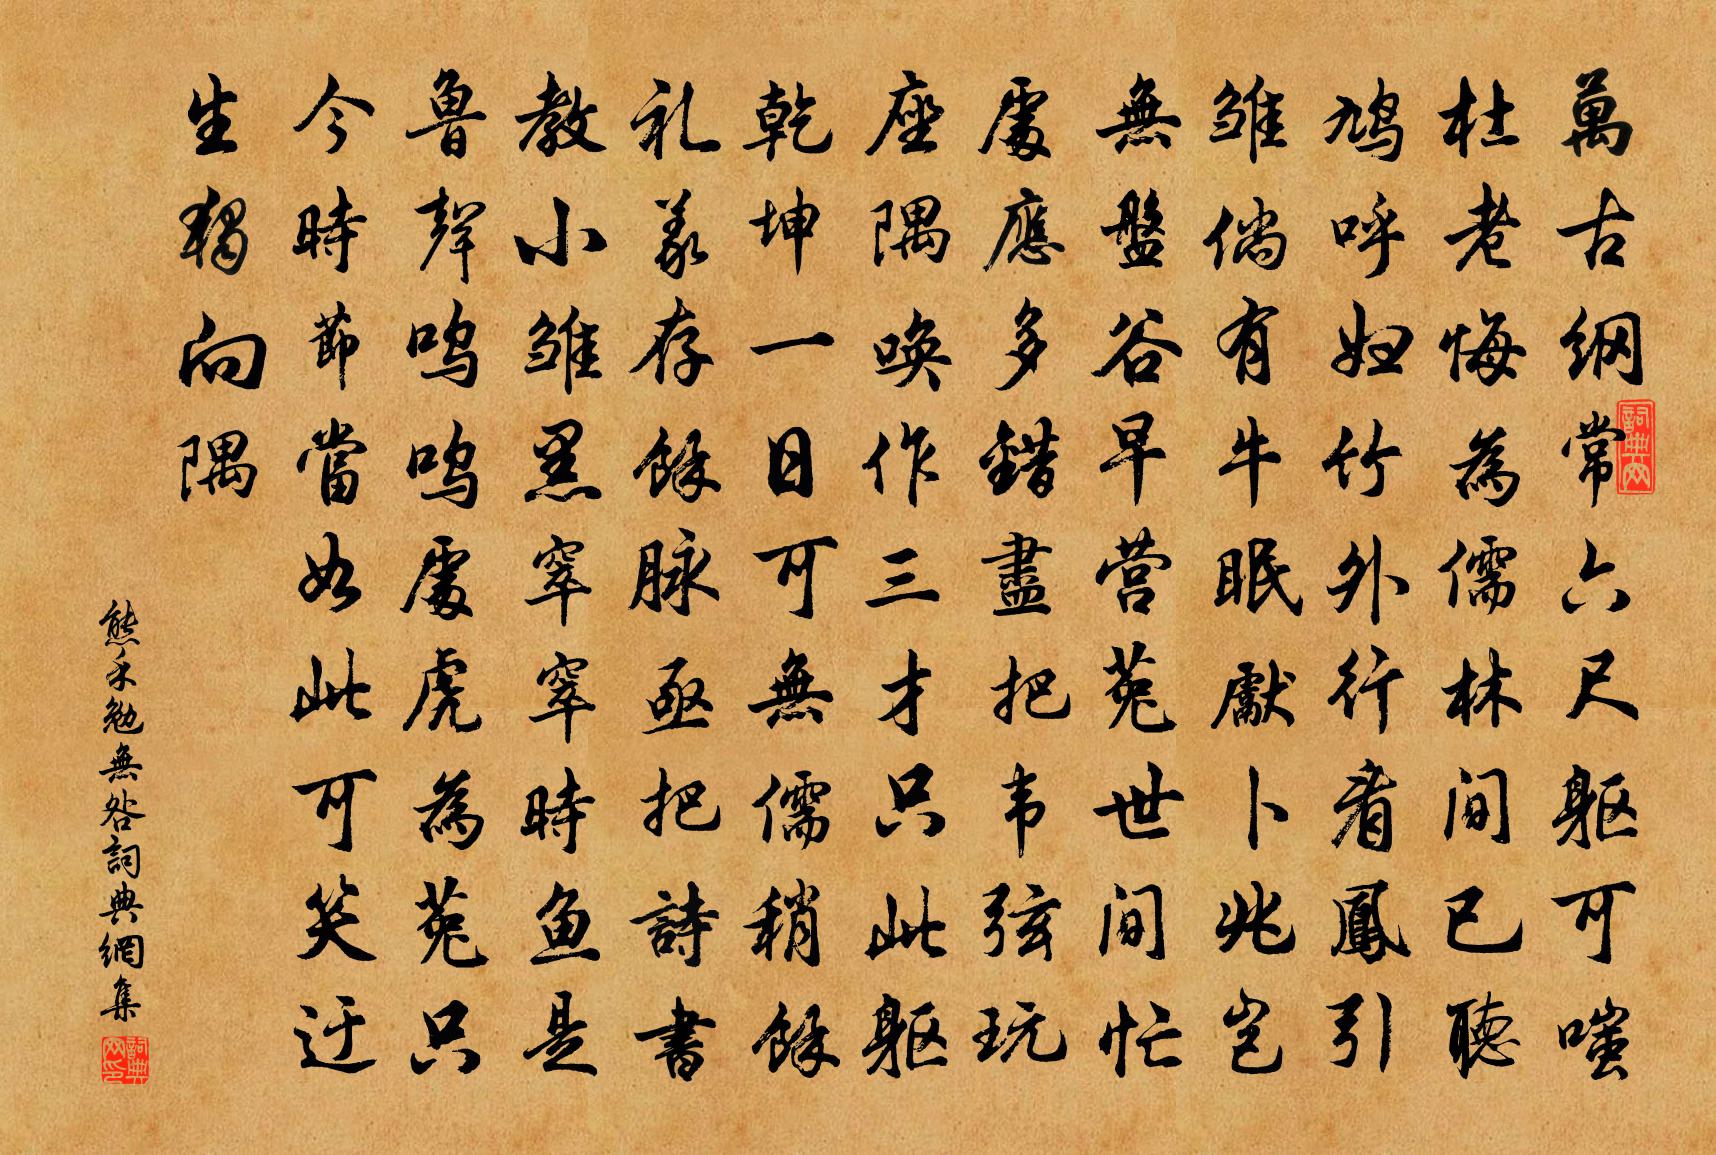 萬古綱常六尺躯可嗤
杜老悔為儒林间已聽
鳩呼妇竹外行看鳳引
雏倘有牛眠獻卜兆岂
無盤谷早营菟世间忙
處應多錯盡把韦弦玩
座隅唤作三才只此躯
乾坤一日可無儒稍餘
礼義存餘脉亟把詩書
教小雏黑窣窣時鱼是
魯聲鸣鸣處虎為菟只
今時節當如此可笑迂
生獨向隅
熊禾勉無咎詞典網集
詞典网
詞典网印